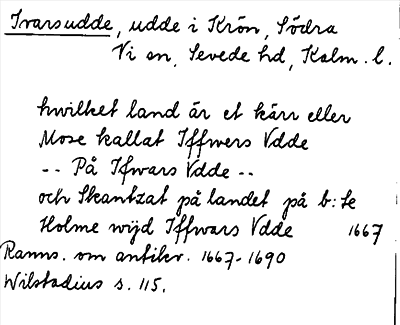 Ivarsudde, udde i Krön, Södra
Vi sn, Sevede hd, Kalm. l.
hwilket land är et kärr eller
Mose kallat Iffwers Vdde
-- På Ifwars Vdde --
och Skantzat på landet på b: te
Holme wijd Iffwars Vdde 1667
Ranns. om antikv. 1667-1690
Wilstadius s. 115.